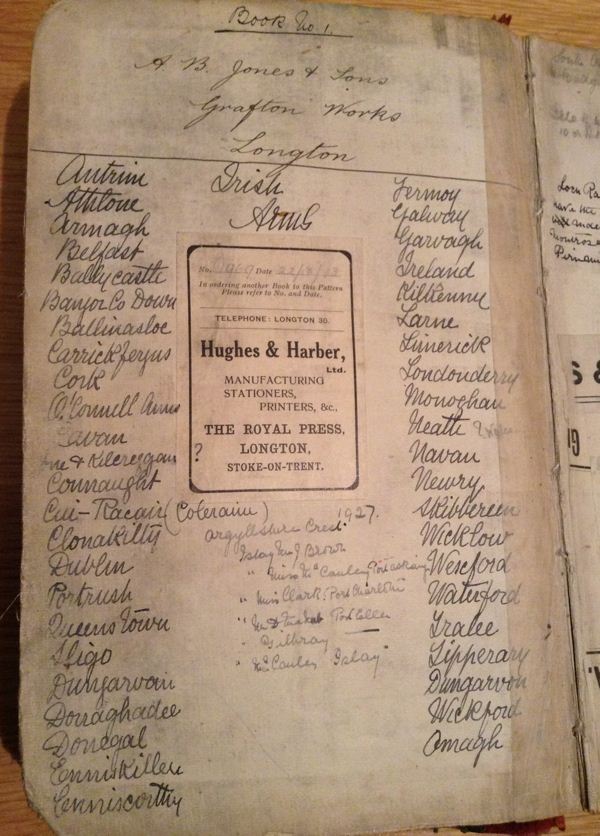 Book No 1.
A B. Jones & Sons
Grafton Works
Longton
Irish
Arms
Antrim
Athlone
Armagh
Belfast
Ballycastle
Bangor Co Down
Ballinasloe
Carrickfergus
Cork
O'Connell Arms
Cavan
& Kilcreggan
Connaught
Cui-Racair (Coleraine)
Clonakilty
Dublin
Portrush
Queenstown
Sligo
Dungarvan
Donaghadee
Donegal
Enniskillen
Enniscorthy
No. Date 22/8/13
In ordering another Book to this Pattern
Please refer to No. and Date.
TELEPHONE: LONGTON 30.
Hughes & Harber,
Ltd.
MANUFACTURING
STATIONERS,
PRINTERS, &c.,
THE ROYAL PRESS,
LONGTON,
STOKE-ON-TRENT.
?
1927.
Argyllshire Crest.
Islay J Brown
" Miss McCauley Port askaig
" Miss Clark. Port Charlotte
" Port Ellen
" Gilbray
" McCauley Islay
Fermoy
Galway
Garvagh
Ireland
Kilkenny
Larne
Limerick
Londonderry
Monoghan
Neath
Navan
Newry
Skibbereen
Wicklow
Wexford
Waterford
Tralee
Tipperary
Dungarvon
Wickford
Omagh